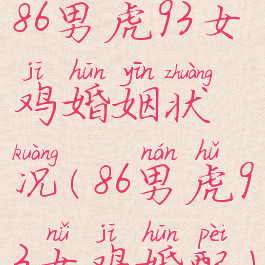 86男虎93女
jī hūn yīn zhuàng
鸡婚姻状
kuàng nán hǔ
况(86男虎9
nǚ jī hūn pèi
3女鸡婚配)